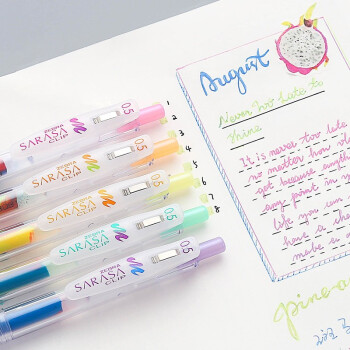 August
Never too late to
shine
It is never too late
no matter how old
get because anythi
any point in yo
Like you can
have a cha
make e
pine
0.5
ZEBRA
SARASA
CLIP
0.5
ZEBRA
SARASA
CLIP
0.5
ZEBRA
SARASA
CLIP
0.5
ZEBRA
SARASA
CLIP
0.5
ZEBRA
SARASA
CLIP
1
2
3
4
5
6
7
8